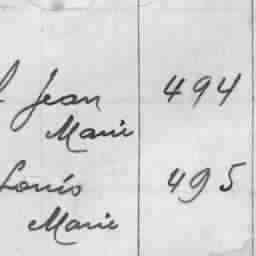 Jean 494
Marie
Louis 495
Marie